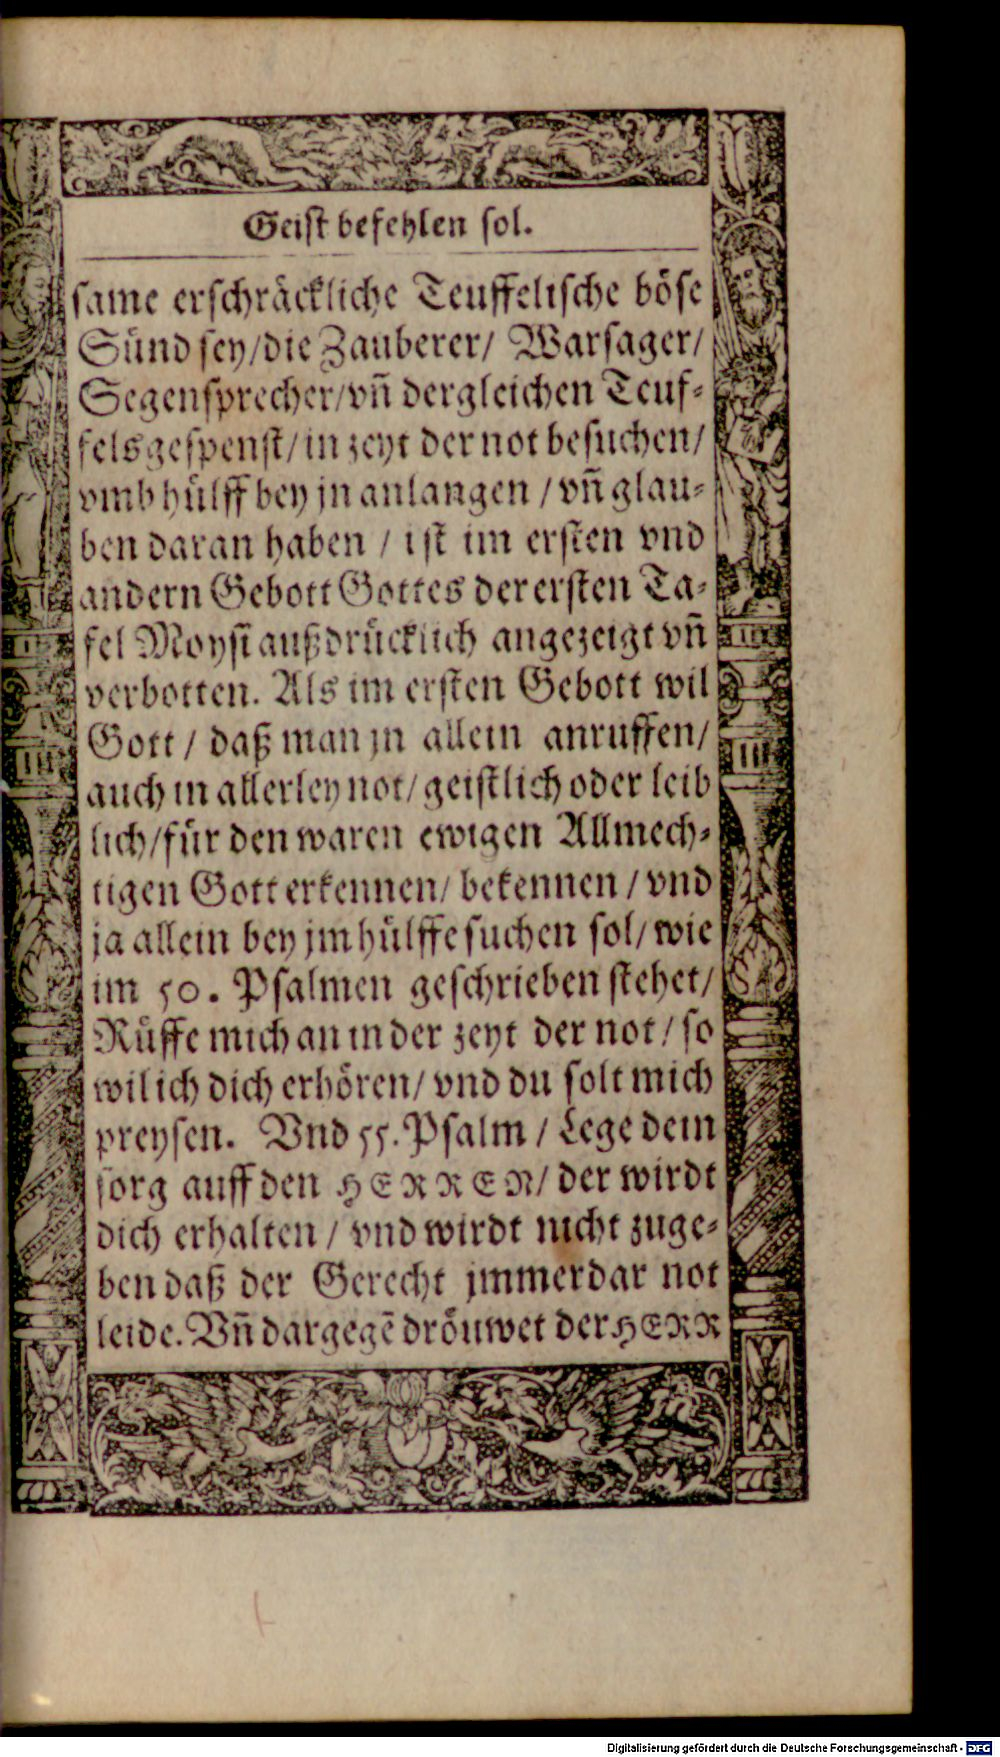 Geist befehlen sol.
same erschräckliche Teuffelische böse
Sünd sey/die Zauberer/ Warsager/
Segensprecher/vñ dergleichen Teuf-
felsgespenst/in zeyt der not besuchen/
vmb hülff bey jn anlangen / vñ glau-
ben daran haben / ist im ersten vnd
andern Gebott Gottes der ersten Ta-
fel Moysi außdrücklich angezeigt vñ
verbotten. Als im ersten Gebott wil
Gott / daß man jn allein anruffen/
auch in allerley not/ geistlich oder leib
lich/für den waren ewigen Allmech-
tigen Gott erkennen/ bekennen / vnd
ja allein bey jm hülffe suchen sol/ wie
im 50. Psalmen geschrieben stehet/
Rüffe mich an in der zeyt der not / so
wil ich dich erhören/ vnd du solt mich
preysen. Vnd 55. Psalm / Lege dein
sorg auff den HERREN/ der wirdt
dich erhalten / vnd wirdt nicht zuge-
ben daß der Gerecht jmmerdar not
leide. Vñ dargegē dröuwet der HERR
Digitalisierung gefördert durch die Deutsche Forschungsgemeinschaft - DFG